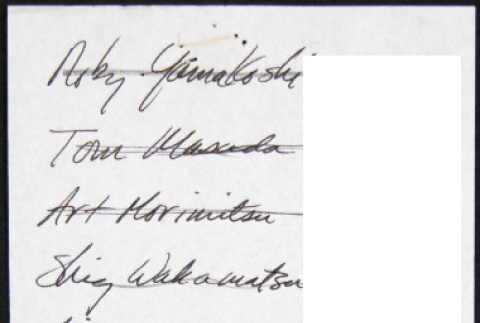 Noby Yamakoshi
Tom Masuda
Art Morimitsu
Shig Wakamatsu